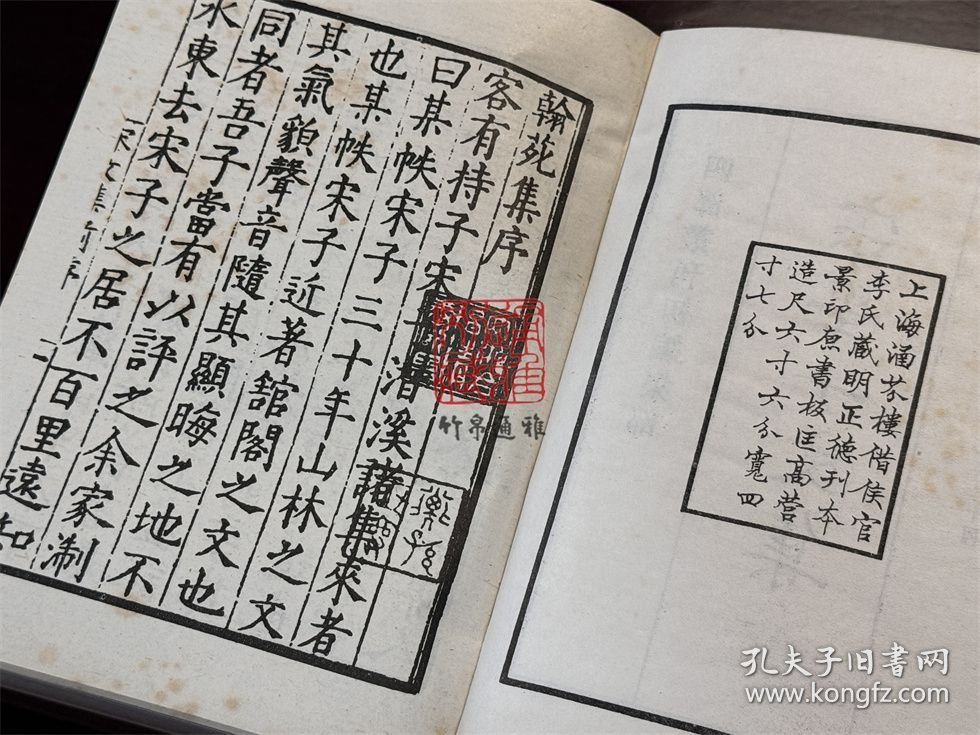 上海涵芬樓借侯官
李氏藏明正德刊本
景印原書板匡高營
造尺六寸六分寬四
寸七分
翰苑集序
客有持子宋潛溪諸集來者
曰某帙宋子三十年山林之文
也某帙宋子近著舘閣之文也
其氣貌聲音隨其顯晦之地不
同者吾子當有以評之余家淛
水東去宋子之居不百里遠知
宋文集前序 二
竹帛通雅
孔夫子旧书网
www.kongfz.com